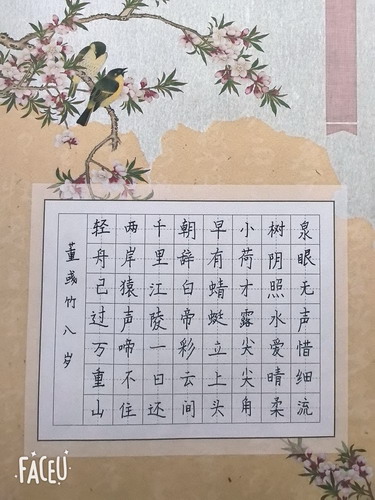 泉眼无声惜细流
树阴照水爱晴柔
小荷才露尖尖角
早有蜻蜓立上头
朝辞白帝彩云间
千里江陵一日还
两岸猿声啼不住
轻舟已过万重山
董彧竹 八岁
FACEU